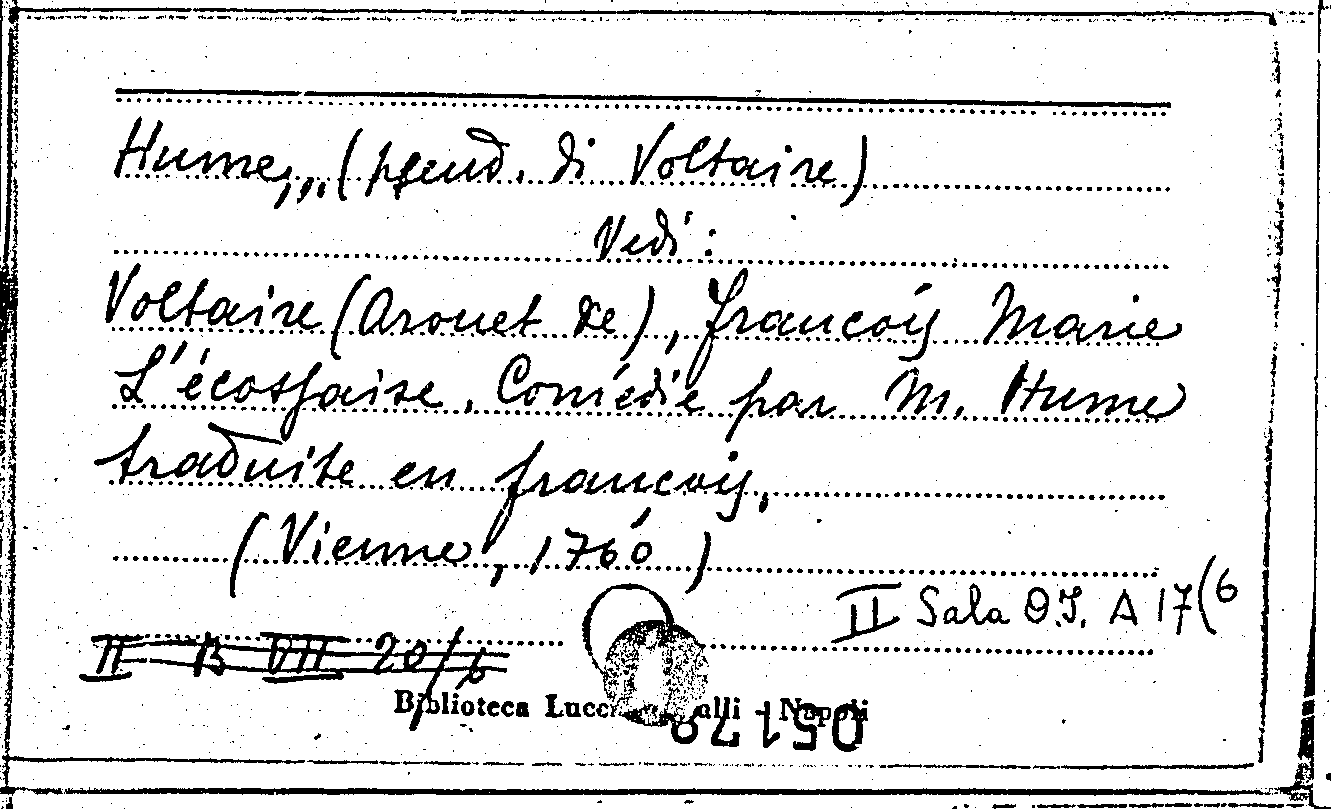 Hume,,.(pseud. di Voltaire)
Vedi:
Voltaire (Arouet de), françois Marie
L'écossaise. Comédie par M. Hume
traduite en françois.
(Vienne, 1760)
II Sala A 17(6
II B VII 20/6
Biblioteca - Napoli